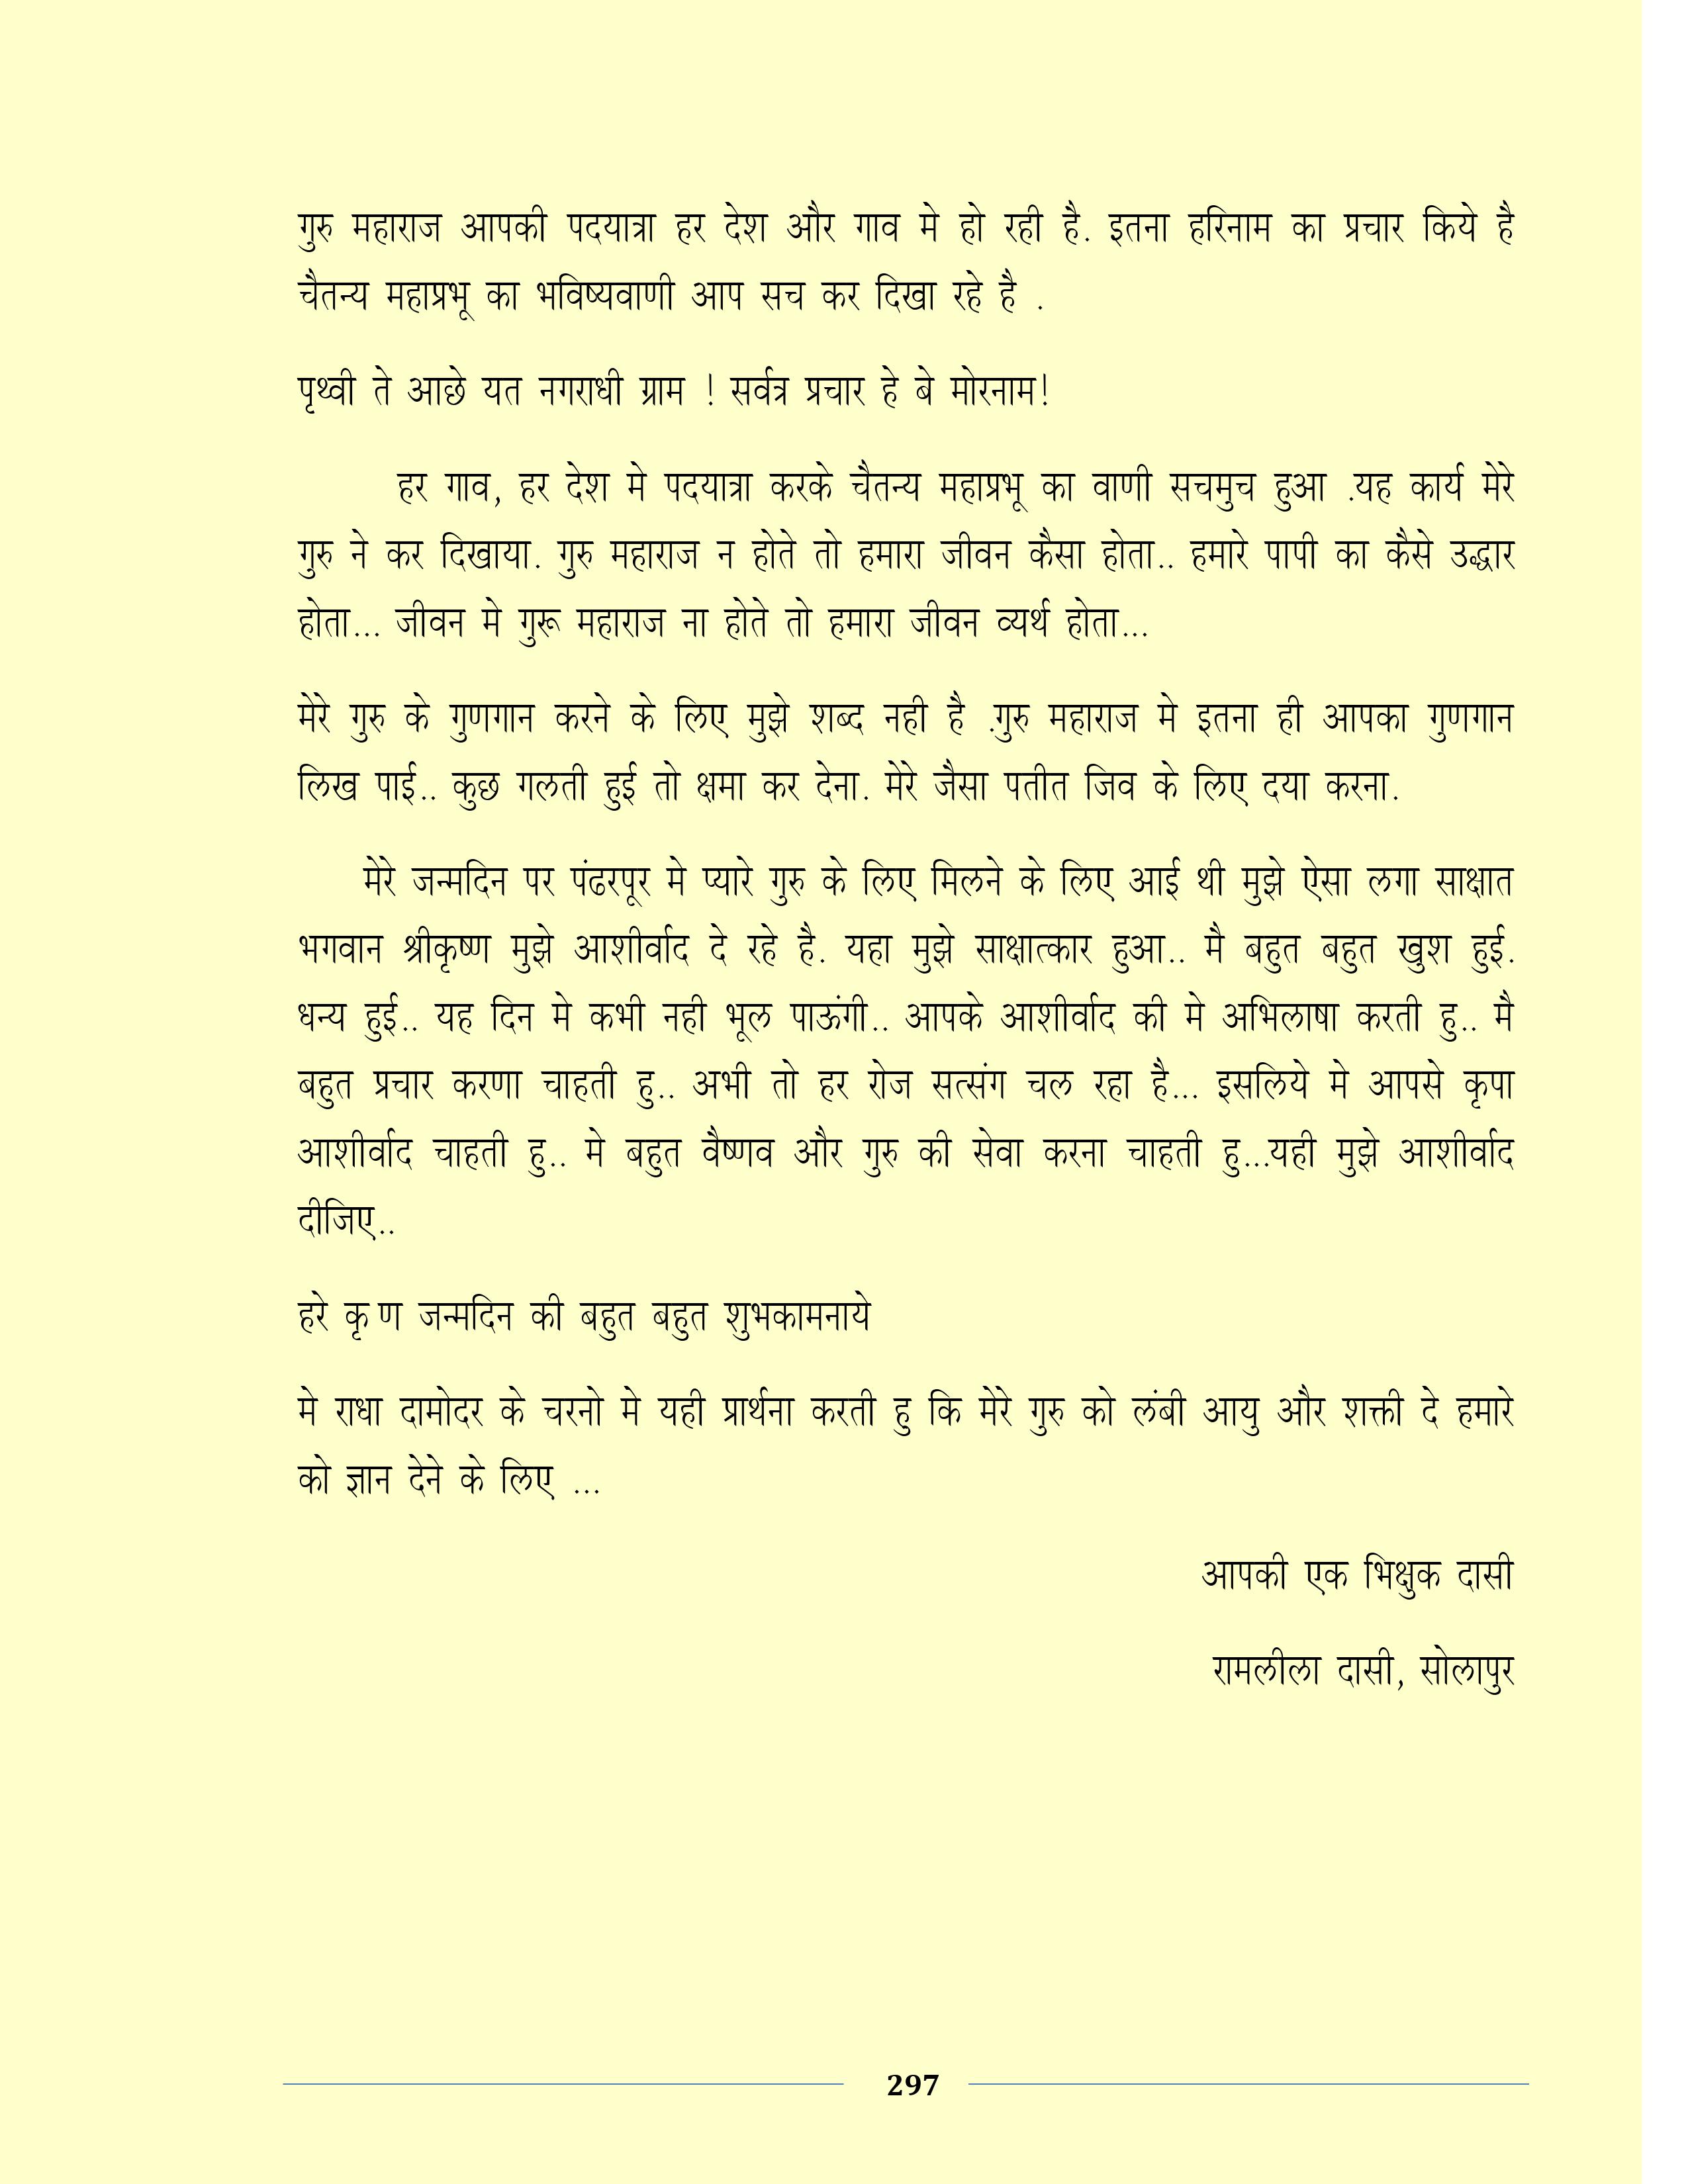 गुरु महाराज आपकी पदयात्रा हर देश और गाव मे हो रही है. इतना हरिनाम का प्रचार किये है
चैतन्य महाप्रभू का भविष्यवाणी आप सच कर दिखा रहे है .
पृथ्वी ते आछे यत नगराधी ग्राम ! सर्वत्र प्रचार हे बे मोरनाम!
हर गाव, हर देश मे पदयात्रा करके चैतन्य महाप्रभू का वाणी सचमुच हुआ .यह कार्य मेरे
गुरु ने कर दिखाया. गुरु महाराज न होते तो हमारा जीवन कैसा होता.. हमारे पापी का कैसे उद्धार
होता... जीवन मे गुरू महाराज ना होते तो हमारा जीवन व्यर्थ होता...
मेरे गुरु के गुणगान करने के लिए मुझे शब्द नही है .गुरु महाराज मे इतना ही आपका गुणगान
लिख पाई.. कुछ गलती हुई तो क्षमा कर देना. मेरे जैसा पतीत जिव के लिए दया करना.
मेरे जन्मदिन पर पंढरपूर मे प्यारे गुरु के लिए मिलने के लिए आई थी मुझे ऐसा लगा साक्षात
भगवान श्रीकृष्ण मुझे आशीर्वाद दे रहे है. यहा मुझे साक्षात्कार हुआ.. मै बहुत बहुत खुश हुई.
धन्य हुई.. यह दिन मे कभी नही भूल पाऊंगी.. आपके आशीर्वाद की मे अभिलाषा करती हु.. मै
बहुत प्रचार करणा चाहती हु.. अभी तो हर रोज सत्संग चल रहा है... इसलिये मे आपसे कृपा
आशीर्वाद चाहती हु.. मे बहुत वैष्णव और गुरु की सेवा करना चाहती हु...यही मुझे आशीर्वाद
दीजिए..
हरे कृ ण जन्मदिन की बहुत बहुत शुभकामनाये
मे राधा दामोदर के चरनो मे यही प्रार्थना करती हु कि मेरे गुरु को लंबी आयु और शक्ती दे हमारे
को ज्ञान देने के लिए ...
आपकी एक भिक्षुक दासी
रामलीला दासी, सोलापुर
297